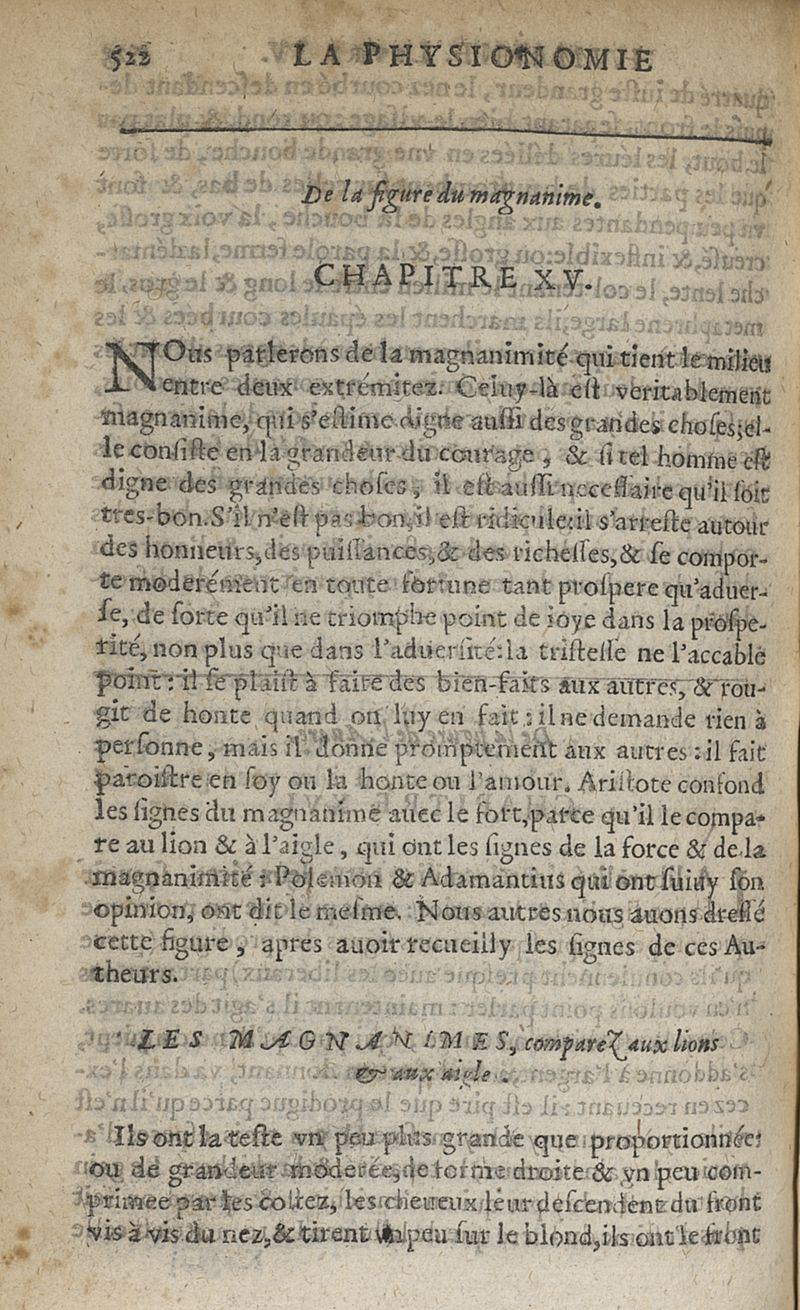 522 LA PHYSIONOMIE
De la figure du magnanime.
CHAPITRE XV.
NOus parlerons de la magnanimité qui tient le milieu
entre deux extrémitez. Celuy-là est veritablement
magnanime, qui s'estime digne aussi des grandes choses; el-
le consiste en la grandeur du courage, & si tel homme est
digne des grandes choses, il est aussi necessaire qu'il soit
tres-bon. S'il n'est pas bon, il est ridicule: il s'arreste autour
des honneurs, des puissances, & des richesses, & se compor-
te moderément en toute fortune tant prospere qu'aduer-
se, de sorte qu'il ne triomphe point de ioye dans la prospe-
rité, non plus que dans l'aduersité: la tristesse ne l'accable
point: il se plaist à faire des bien-faits aux autres, & rou-
git de honte quand on luy en fait: il ne demande rien à
personne, mais il donne promptement aux autres: il fait
paroistre en soy ou la honte ou l'amour. Aristote confond
les signes du magnanime auec le fort, parce qu'il le compa-
re au lion & à l'aigle, qui ont les signes de la force & de la
magnanimité: Polemon & Adamantius qui ont suiuy son
opinion, ont dit le mesme. Nous autres nous auons dressé
cette figure, apres auoir recueilly les signes de ces Au-
theurs.
LES MAGNANIMES, comparez aux lions
& aux aigle.
Ils ont la teste vn peu plus grande que proportionnée:
ou de grandeur moderée, de forme droite & vn peu com-
primee par les costez, les cheueux leur descendent du front
vis à vis du nez, & tirent vn peu sur le blond, ils ont le front